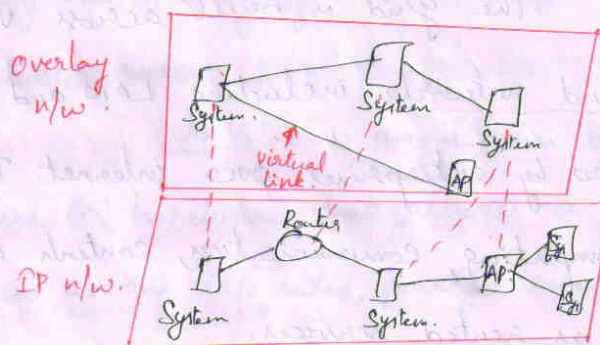 Overlay
n/w.
System.
System
System
virtual
link.
AP
Router
IP n/w.
System
System.
AP
Sys
Sys